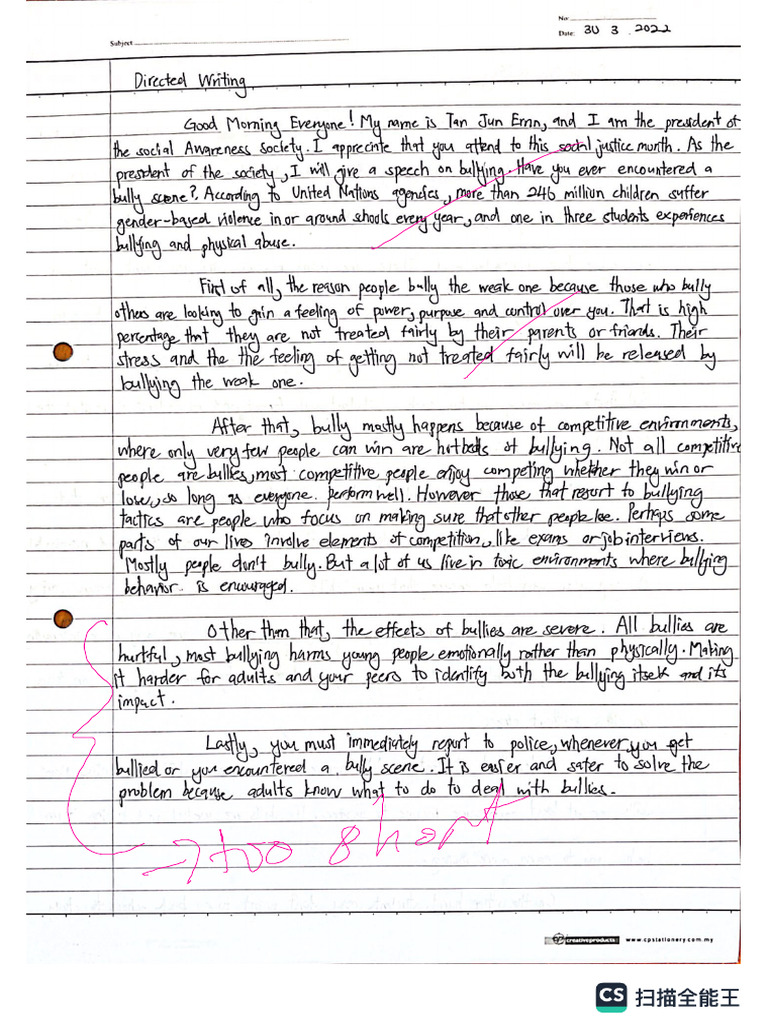 No:
Date: 30 3 2022
Subject
Directed Writing
Good Morning Everyone! My name is Tan Jun Ernn, and I am the president of
the social Awareness Society. I appreciate that you attend to this social justice month. As the
president of the society, I will give a speech on bullying. Have you ever encountered a
bully scene? According to United Nations agencies, more than 246 million children suffer
gender-based violence in or around schools every year, and one in three students experiences
bullying and physical abuse.
First of all, the reason people bully the weak one because those who bully
others are looking to gain a feeling of power, purpose and control over you. That is high
percentage that they are not treated fairly by their parents or friends. Their
stress and the the feeling of getting not treated fairly will be released by
bullying the weak one.
After that, bully mostly happens because of competitive environments,
where only very few people can win are hotbeds of bullying. Not all competitive
people are bullies, most competitive people enjoy competing whether they win or
lose, so long as everyone performwell. However those that resort to bullying
tactics are people who focus on making sure that other people lose. Perhaps some
parts of our lives involve elements of competition, like exams or job interviews.
Mostly people don't bully. But a lot of us live in toxic environments where bullying
behavior is encouraged.
Other than that, the effects of bullies are severe. All bullies are
hurtful, most bullying harms young people emotionally rather than physically. Making
it harder for adults and your peers to identify both the bullying itself and its
impact.
Lastly, you must immediately report to police, whenever you get
bullied or you encountered a bully scene. It is easier and safer to solve the
problem because adults know what to do to deal with bullies.
→ too short
creativeproducts www.cpstationery.com.my
CS 扫描全能王